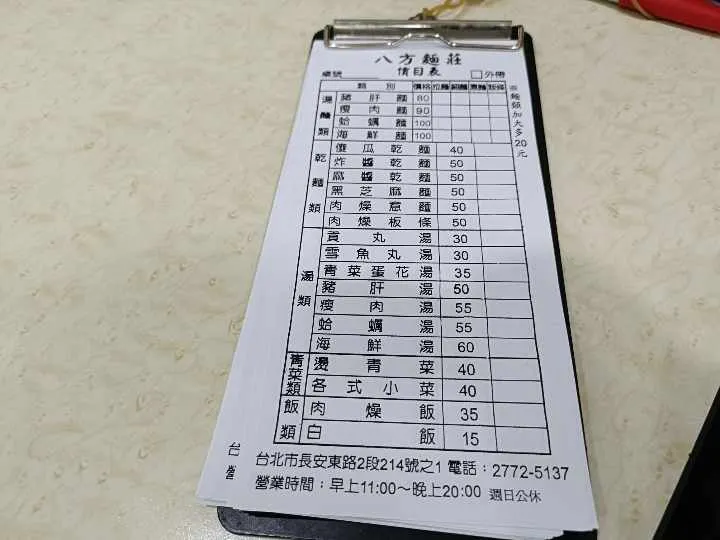 八方麵莊
價目表
桌號 □外帶
類別 價格 拉麵 細麵 意麵 板條
※麵類加大多20元
湯麵類
豬肝麵 80
瘦肉麵 90
蛤蠣麵 100
海鮮麵 100
乾麵類
傻瓜乾麵 40
炸醬乾麵 50
麻醬乾麵 50
黑芝麻麵 50
肉燥意麵 50
肉燥板條 50
湯類
貢丸湯 30
雪魚丸湯 30
青菜蛋花湯 35
豬肝湯 50
瘦肉湯 55
蛤蠣湯 55
海鮮湯 60
青菜類
燙青菜 40
各式小菜 40
飯類
肉燥飯 35
白飯 15
台北市長安東路2段214號之1 電話：2772-5137
營業時間：早上11:00～晚上20:00 週日公休
台
營